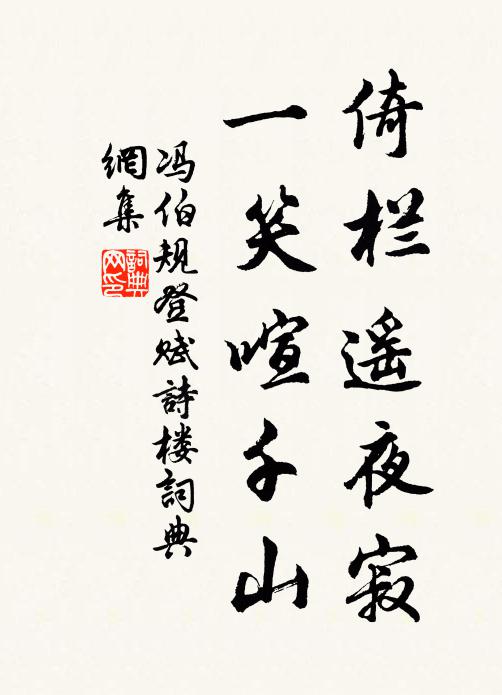 倚栏遥夜寂
一笑喧千山
冯伯规登赋詩楼詞典
網集
詞典
网印